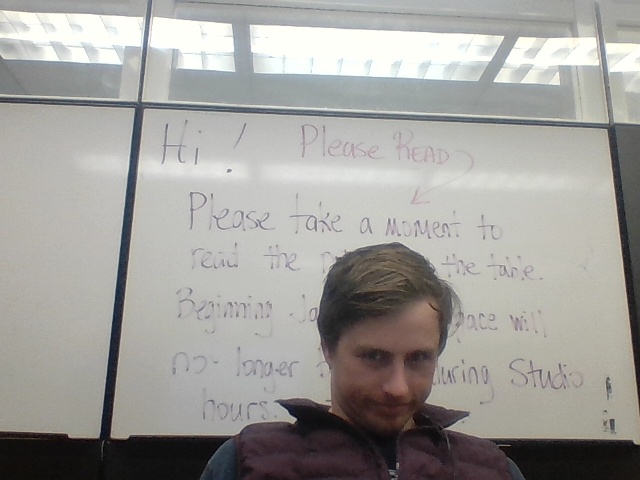 Hi! Please READ
Please take a moment to
read the the table.
Beginning will
no longer during Studio
hours.